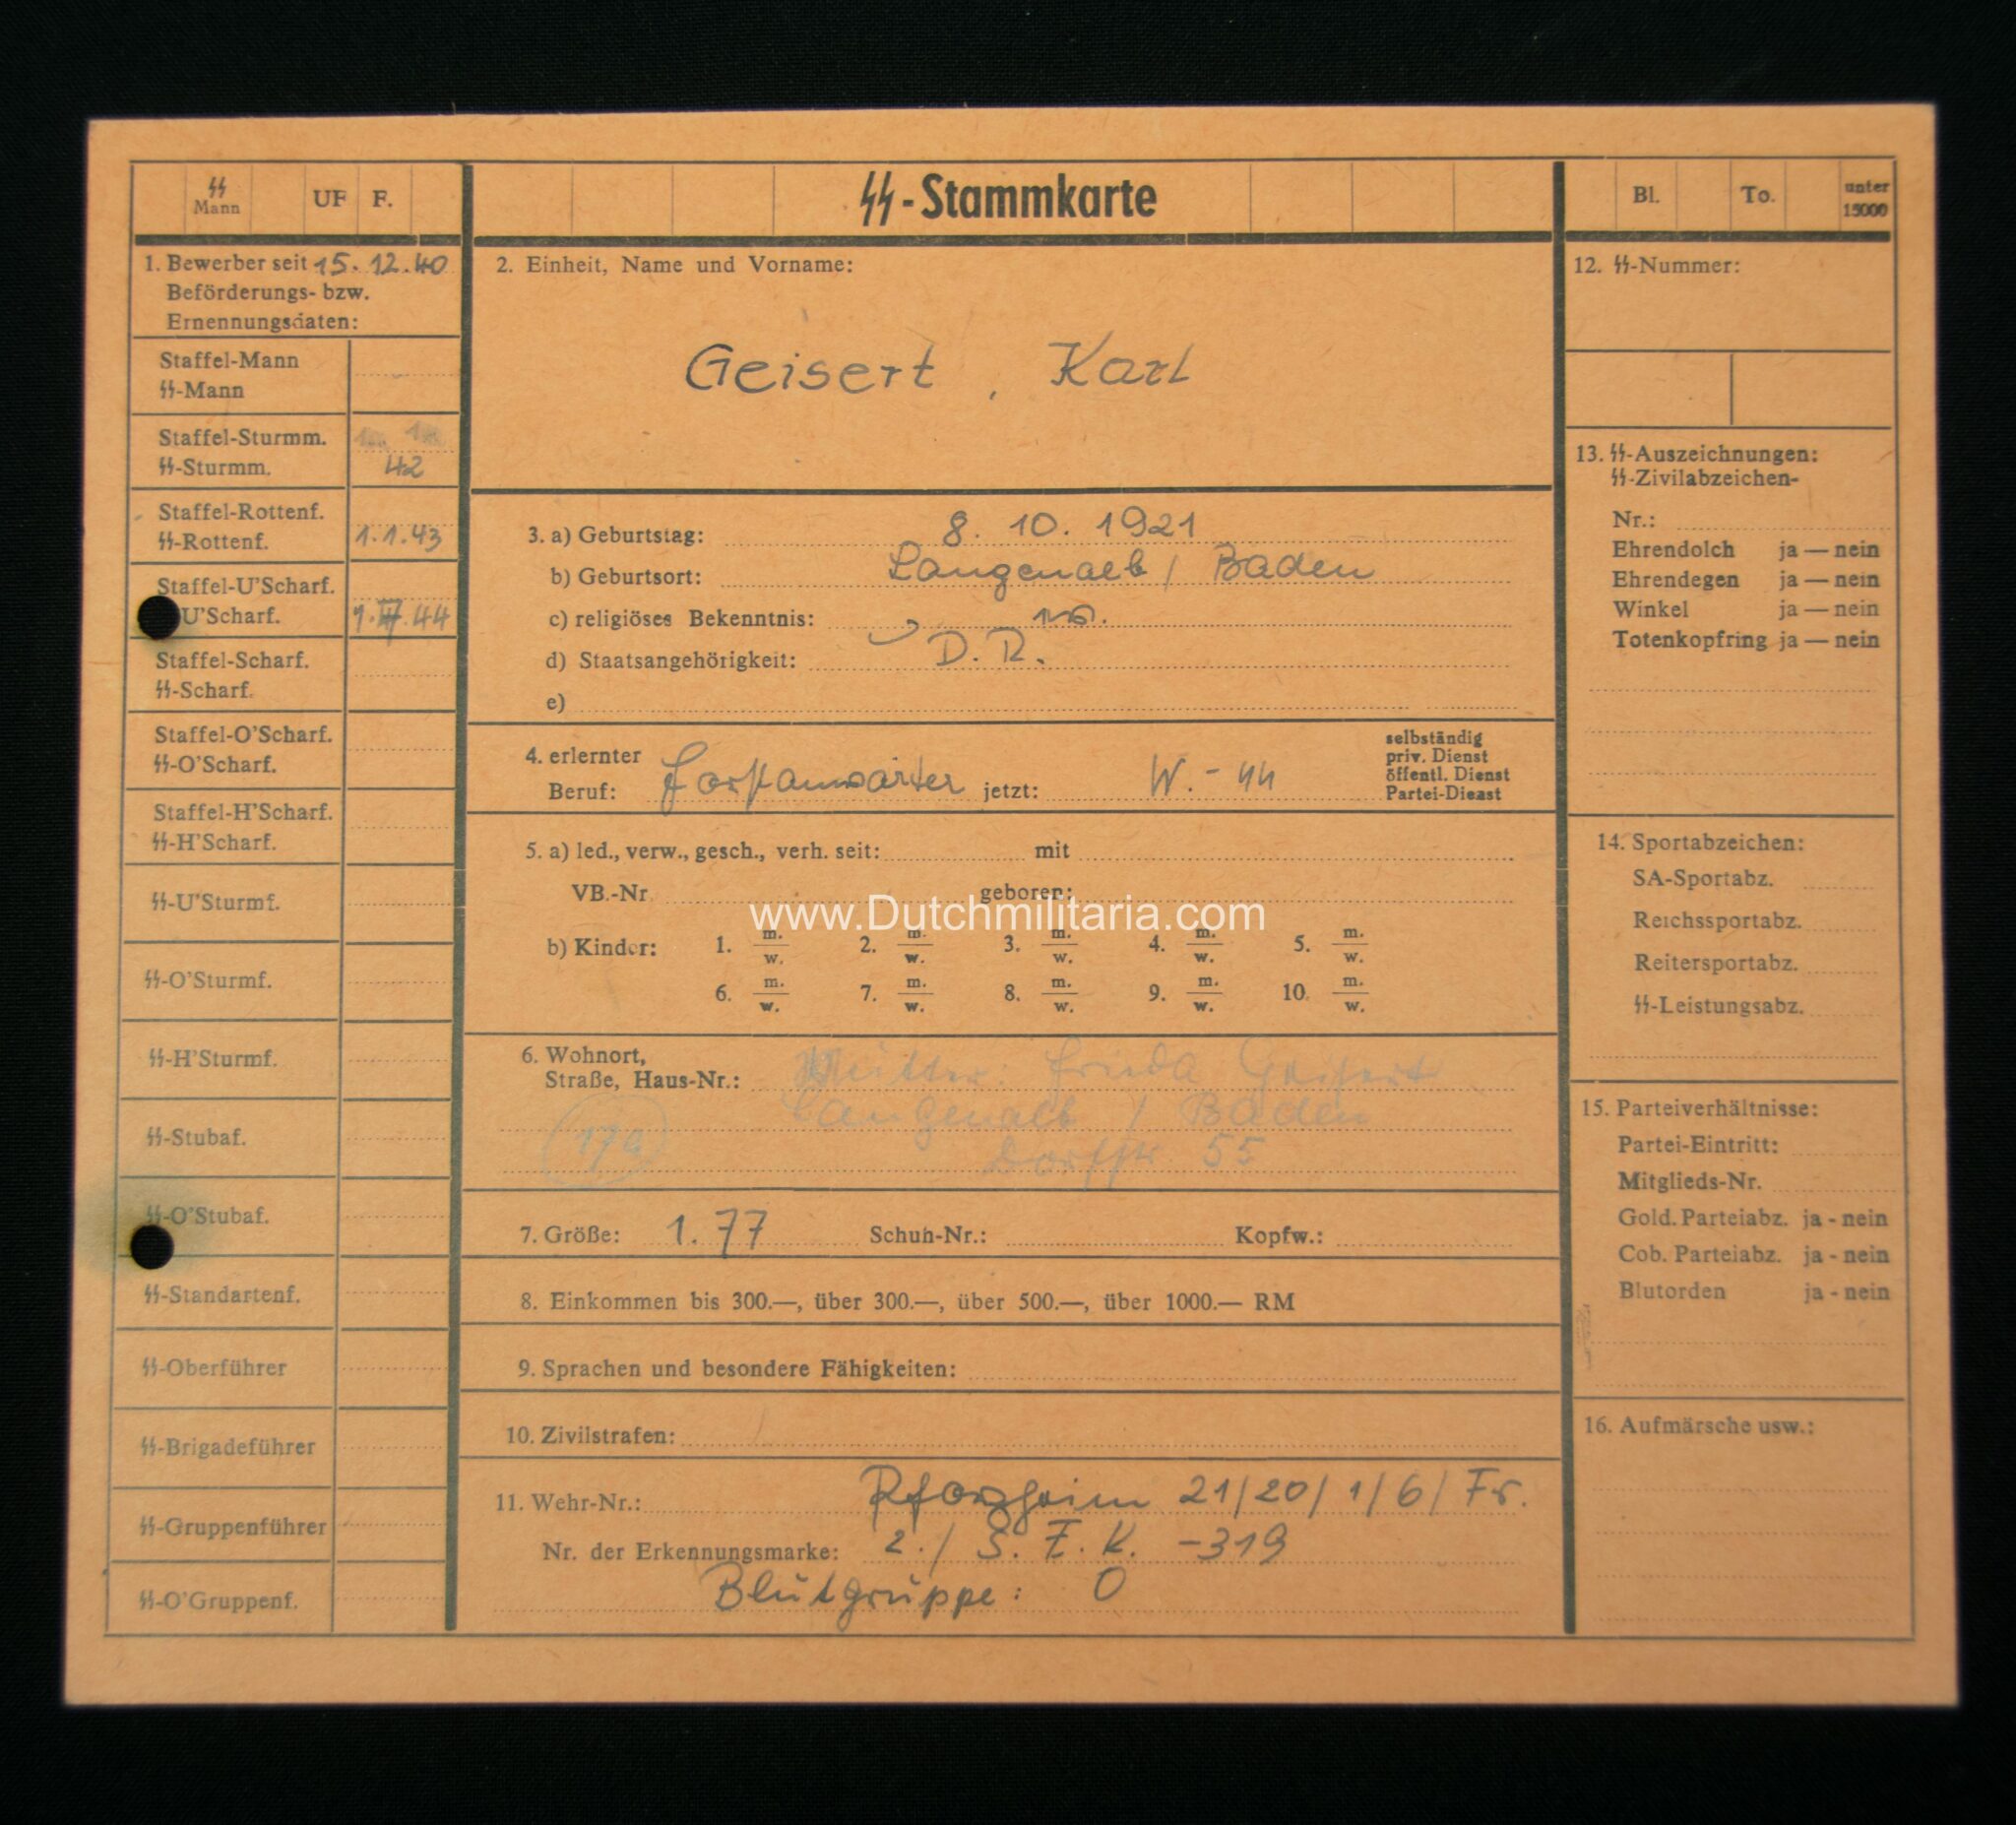 ᛋᛋ Mann UF F.
1. Bewerber seit 15.12.40
Beförderungs- bzw.
Ernennungsdaten:
Staffel-Mann
ᛋᛋ-Mann
Staffel-Sturmm.
ᛋᛋ-Sturmm. 42
Staffel-Rottenf.
ᛋᛋ-Rottenf. 1.1.43
Staffel-U'Scharf.
U'Scharf. 44
Staffel-Scharf.
ᛋᛋ-Scharf.
Staffel-O'Scharf.
ᛋᛋ-O'Scharf.
Staffel-H'Scharf.
ᛋᛋ-H'Scharf.
ᛋᛋ-U'Sturmf.
ᛋᛋ-O'Sturmf.
ᛋᛋ-H'Sturmf.
ᛋᛋ-Stubaf.
ᛋᛋ-O'Stubaf.
ᛋᛋ-Standartenf.
ᛋᛋ-Oberführer
ᛋᛋ-Brigadeführer
ᛋᛋ-Gruppenführer
ᛋᛋ-O'Gruppenf.
ᛋᛋ-Stammkarte
2. Einheit, Name und Vorname:
Geisert, Karl
3. a) Geburtstag: 8. 10. 1921
b) Geburtsort: Langenalb / Baden
c) religiöses Bekenntnis:
d) Staatsangehörigkeit: D.R.
e)
4. erlernter
Beruf: Forstanwärter jetzt: W.-ᛋᛋ
selbständig
priv. Dienst
öffentl. Dienst
Partei-Dienst
5. a) led., verw., gesch., verh. seit: mit
VB.-Nr. geboren:
www.Dutchmilitaria.com
b) Kinder: 1. m. w. 2. m. w. 3. m. w. 4. m. w. 5. m. w.
6. m. w. 7. m. w. 8. m. w. 9. m. w. 10. m. w.
6. Wohnort,
Straße, Haus-Nr.: Mutter: Frieda Geisert
Langenalb / Baden
(17a) Dorfstr 55
7. Größe: 1.77 Schuh-Nr.: Kopfw.:
8. Einkommen bis 300.—, über 300.—, über 500.—, über 1000.— RM
9. Sprachen und besondere Fähigkeiten:
10. Zivilstrafen:
11. Wehr-Nr.: Pforzheim 21/20/1/6/Fr.
Nr. der Erkennungsmarke: 2./ -319
Blutgruppe: O
Bl. To. unter 15000
12. ᛋᛋ-Nummer:
13. ᛋᛋ-Auszeichnungen:
ᛋᛋ-Zivilabzeichen-
Nr.:
Ehrendolch ja — nein
Ehrendegen ja — nein
Winkel ja — nein
Totenkopfring ja — nein
14. Sportabzeichen:
SA-Sportabz.
Reichssportabz.
Reitersportabz.
ᛋᛋ-Leistungsabz.
15. Parteiverhältnisse:
Partei-Eintritt:
Mitglieds-Nr.
Gold. Parteiabz. ja - nein
Cob. Parteiabz. ja - nein
Blutorden ja - nein
16. Aufmärsche usw.: